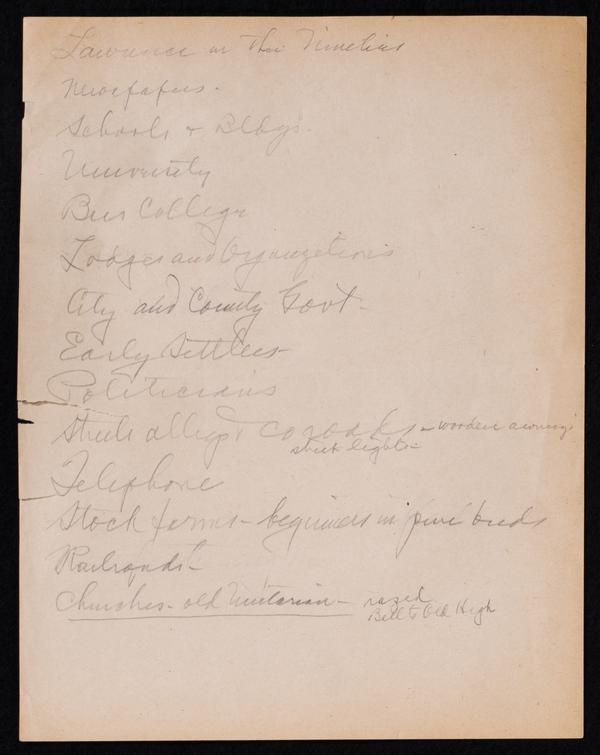 Lawrence in the Nineties
Newspapers.
Schools & Bldgs.
University
Bus College
Lodges and Organizations
City and County Govt -
Early Settlers -
Politicians
Streets alleys & co roads - wooden awnings
street lights -
Telephone
Stock farms - beginners in pure breds
Railroads -
Churches - old Unitarian - razed
Bell to Old High